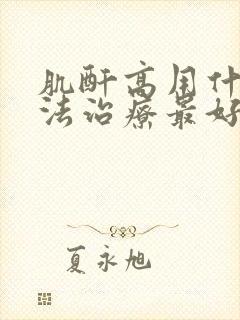 肌酐高用什
法治疗最好
夏永旭